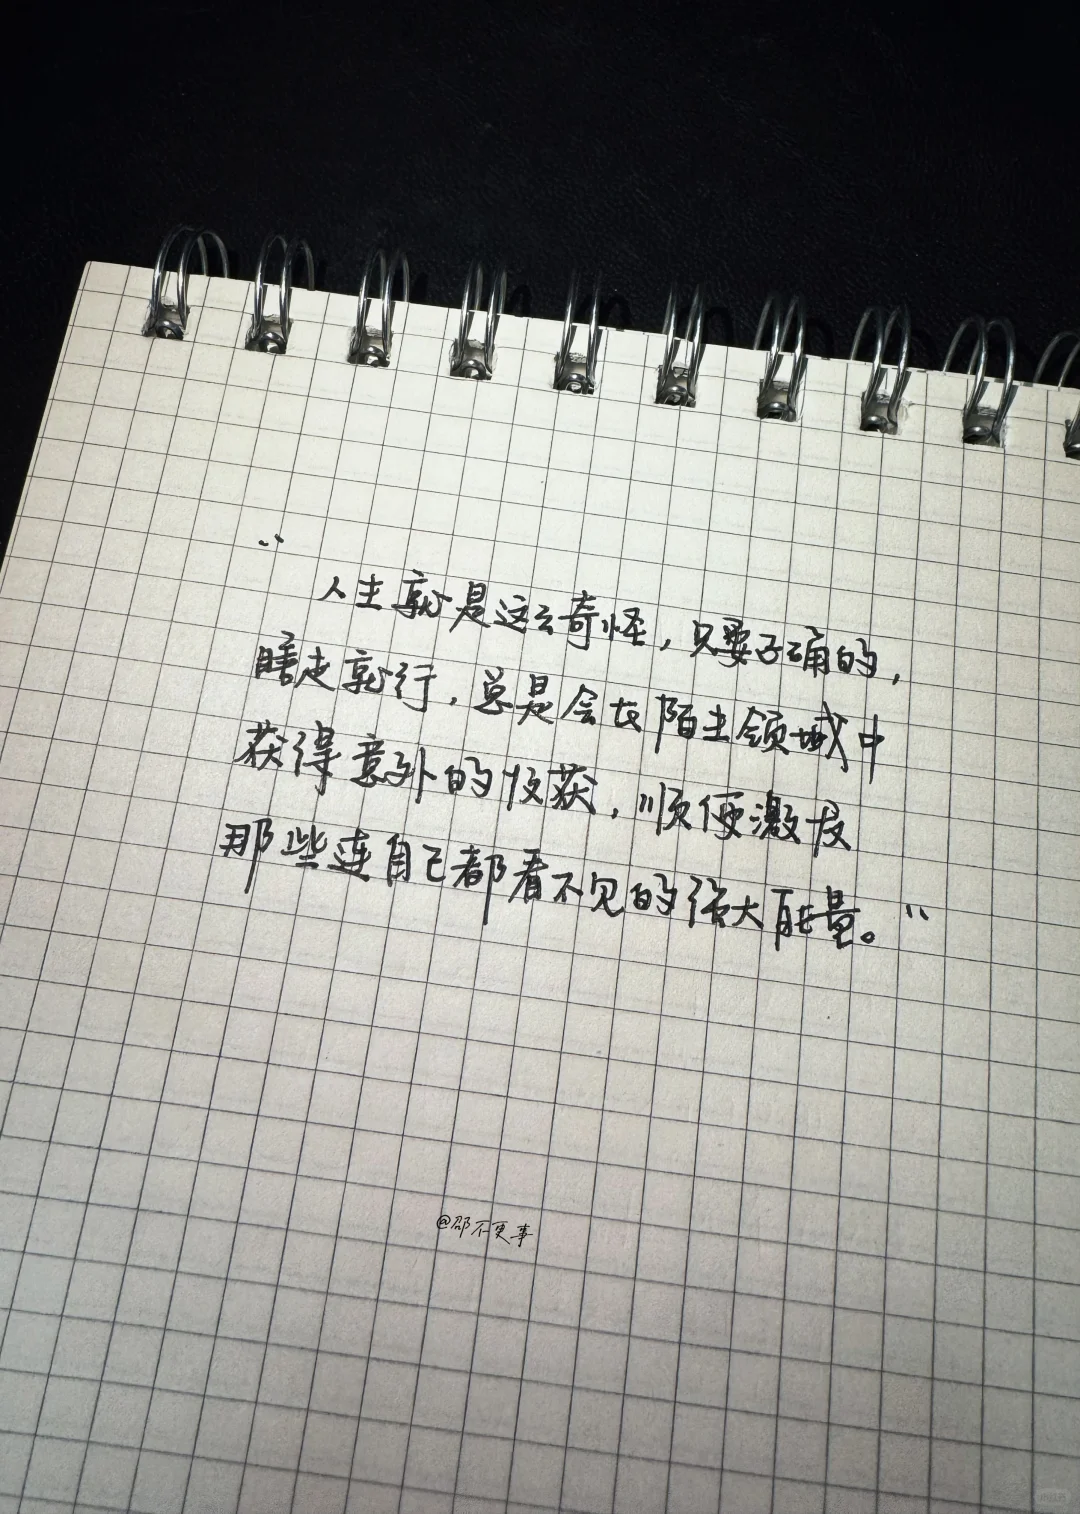 “人生就是这么奇怪，只要正确的，
瞎走就行，总是会在陌生领域中
获得意外的收获，顺便激发
那些连自己都看不见的强大能量。”
@邵不更事